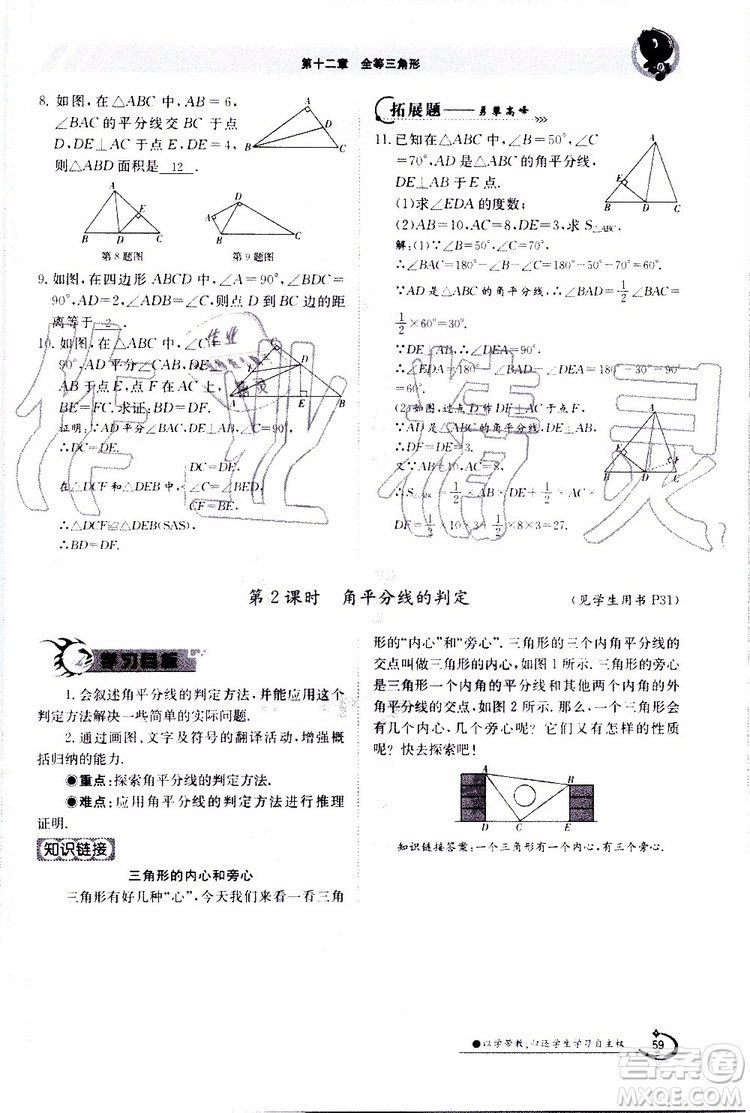 第十二章 全等三角形
8. 如图,在△ABC 中,AB=6,
∠BAC 的平分线交 BC 于点
D,DE⊥AC 于点 E,DE=4,
则△ABD 面积是 12 .
A
D
B
C
A
E
B
D
C
第 8 题图
D
A
B
C
第 9 题图
9. 如图,在四边形 ABCD 中,∠A=90°,∠BDC=
90°,AD=2,∠ADB=∠C,则点 D 到 BC 边的距
离等于 2 .
10. 如图,在△ABC 中,∠C=
90°,AD 平分∠CAB,DE⊥AB
于点 E,点 F 在 AC 上,
BE=FC. 求证:BD=DF.
C
D
A
E
B
证明:∵AD 平分∠CAB,DE⊥AB,∠C=90°,
∴DC=DE.
DC=DE,
在△DCF 和△DEB 中,∠C=∠DEB,
CF=EB,
∴△DCF≌△DEB(SAS).
∴BD=DF.
拓展题——勇攀高峰
11. 已知在△ABC 中,∠B=50°,∠C
=70°,AD 是△ABC 的角平分线,
DE⊥AB 于 E 点.
(1)求∠EDA 的度数;
(2)AB=10,AC=8,DE=3,求 S△ABC.
A
E
B
D
C
解:(1)∵∠B=50°,∠C=70°,
∴∠BAC=180°-∠B-∠C=180°-50°-70°=60°.
∵AD 是△ABC 的角平分线,∴∠BAD=1/2∠BAC=
1/2×60°=30°.
∵DE⊥AB,∴∠DEA=90°.
∴∠EDA=180°-∠BAD-∠DEA=180°-30°-90°
=60°.
(2)如图,过点 D 作 DF⊥AC 于点 F,
∵AD 是△ABC 的角平分线,DE⊥AB,
∴DF=DE=3.
又∵AB=10,AC=8,
∴S△ABC=1/2×AB×DE+1/2×AC×
DF=1/2×10×3+1/2×8×3=27.
A
B
D
C
第 2 课时 角平分线的判定
(见学生用书 P31)
学习目标
1. 会叙述角平分线的判定方法,并能应用这个
判定方法解决一些简单的实际问题.
2. 通过画图、文字及符号的翻译活动,增强概
括归纳的能力.
◉重点:探索角平分线的判定方法.
◉难点:应用角平分线的判定方法进行推理
证明.
知识链接
三角形的内心和旁心
三角形有好几种“心”,今天我们来看一看三角
形的“内心”和“旁心”. 三角形的三个内角平分线的
交点叫做三角形的内心,如图 1 所示. 三角形的旁心
是三角形一个内角的平分线和其他两个内角的外
角平分线的交点,如图 2 所示. 那么,一个三角形会
有几个内心,几个旁心呢?它们又有怎样的性质
呢?快去探索吧!
A
B
D
C
E
知识链接答案:一个三角形有一个内心,有三个旁心.
●以学带教,归还学生学习自主权
59
作业精灵
作业
答案圈
MXQE.COM